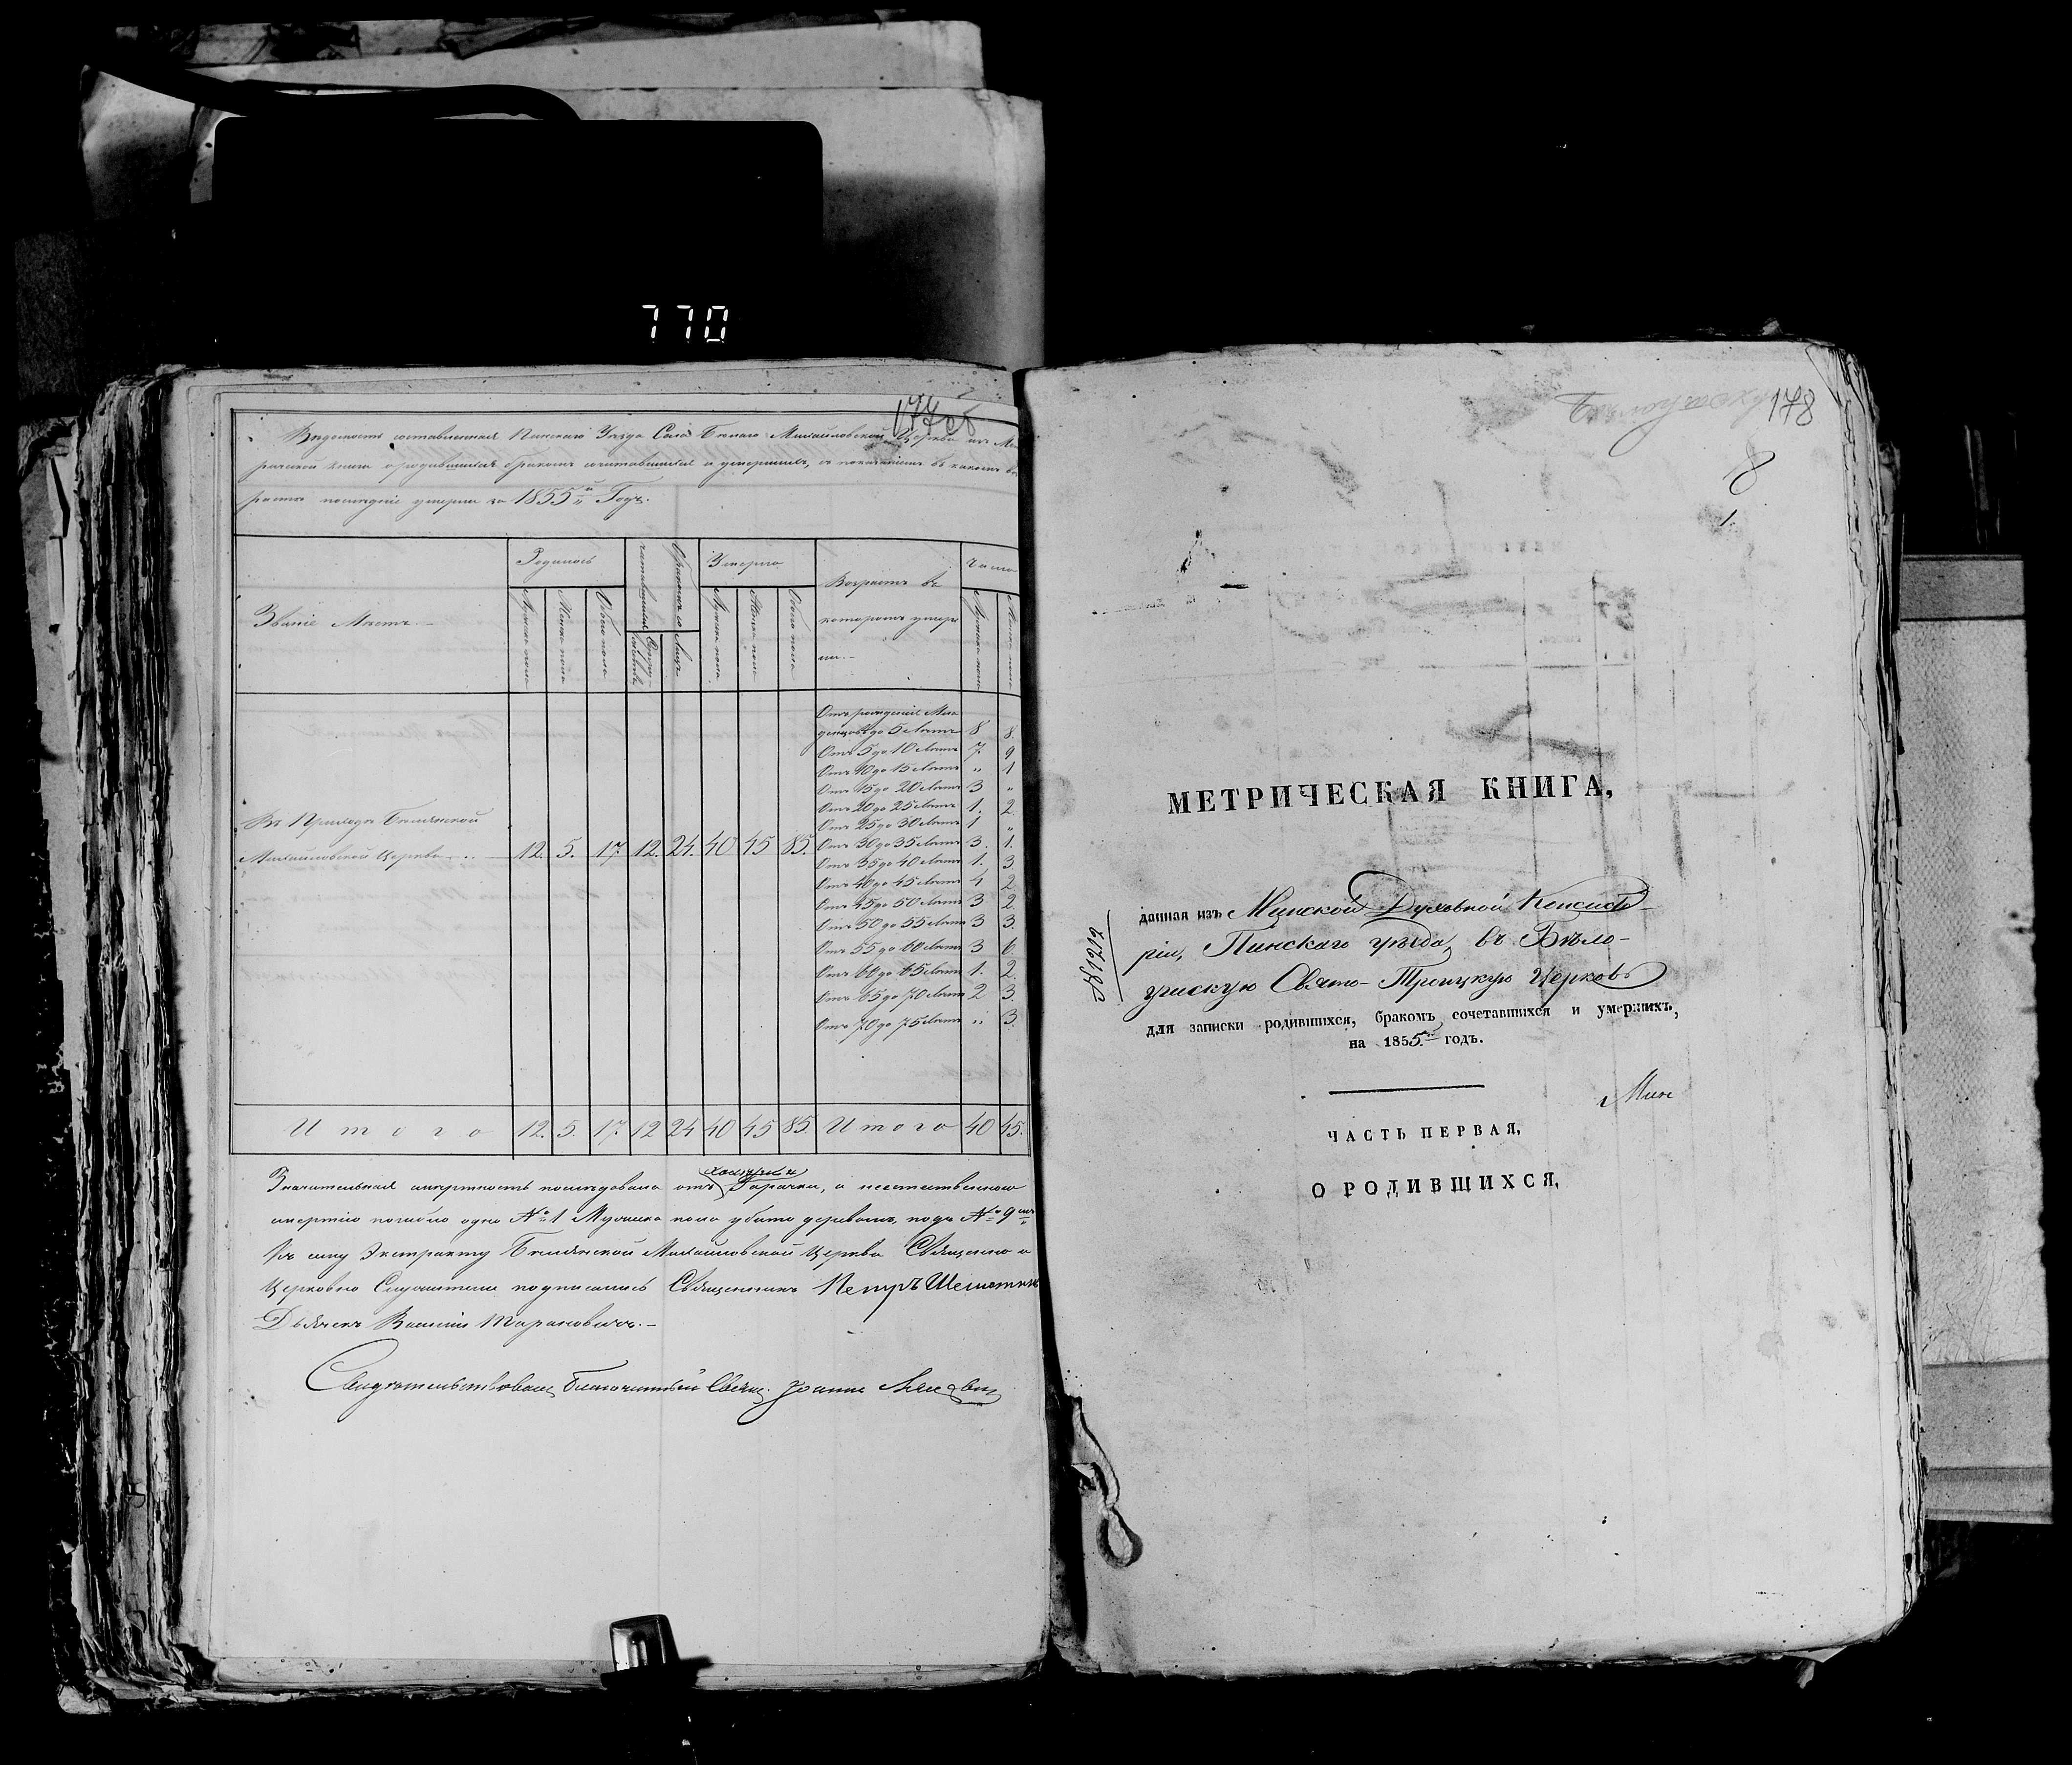 770
177об
Вѣдомость составленная Пинскаго Уѣзда Села Бѣлаго Михайловской Церкви изъ Мет
рической книги о родившихся бракомъ сочетавшихся и умершихъ, съ показаніемъ въ какомъ воз
растѣ послѣдніе умерли за 1855й Годъ.
Званіе Мѣстъ
Родилось
Мужска пола
Женска пола
Обоего пола
Бракомъ со
четавшихся
Супру-
жествъ
Лицъ
Умерло
Мужска пола
Женска пола
Обоего пола
Возрастъ въ
которомъ умер
ли.
Число
Мужска пола
Женска пола
Отъ рожденія Мла
денцовъ до 5 лѣтъ 8 8.
Отъ 5 до 10 лѣтъ 7. 9
Отъ 10 до 15 лѣтъ „ 1
Отъ 15 до 20 лѣтъ 3 „
Отъ 20 до 25 лѣтъ 1. 2.
Отъ 25 до 30 лѣтъ 1 „
Въ Приходѣ Бѣлянской
Михайловской Церкви 12. 5. 17. 12. 24. 40 45 85. Отъ 30 до 35 лѣтъ 3. 1.
Отъ 35 до 40 лѣтъ 1. 3
Отъ 40 до 45 лѣтъ 4 2
Отъ 45 до 50 лѣтъ 3 2
Отъ 50 до 55 лѣтъ 3 3.
Отъ 55 до 60 лѣтъ 3 6.
Отъ 60 до 65 лѣтъ 1. 2.
Отъ 65 до 70 лѣтъ 2 3.
Отъ 70 до 75 лѣтъ „ 3.
Итого 12. 5. 17. 12 24 40 45 85 Итого 40 45.
холеры и
Значительная смертность послѣдовала отъ Горячки, а неестественною
смертію погибло одно №1 Мужска пола убито деревомъ, подъ № 9мъ
Къ сему Экстракту Бѣлянской Михайловской Церкви Священно и
Церковно Служители подписались Священникъ Петръ
Дьячекъ Василій Тарановичъ.
Свидѣтельствовалъ Благочинный Свящ. Іоаннъ
178
8
1.
МЕТРИЧЕСКАЯ КНИГА,
№1212
данная изъ Минской Духовной Консисто-
ріи, Пинскаго уѣзда, въ Бѣло-
ускую Свято-Троицкую Церковь
для записки родившихся, бракомъ сочетавшихся и умершихъ,
на 1855й годъ.
Мин
ЧАСТЬ ПЕРВАЯ,
О РОДИВШИХСЯ,